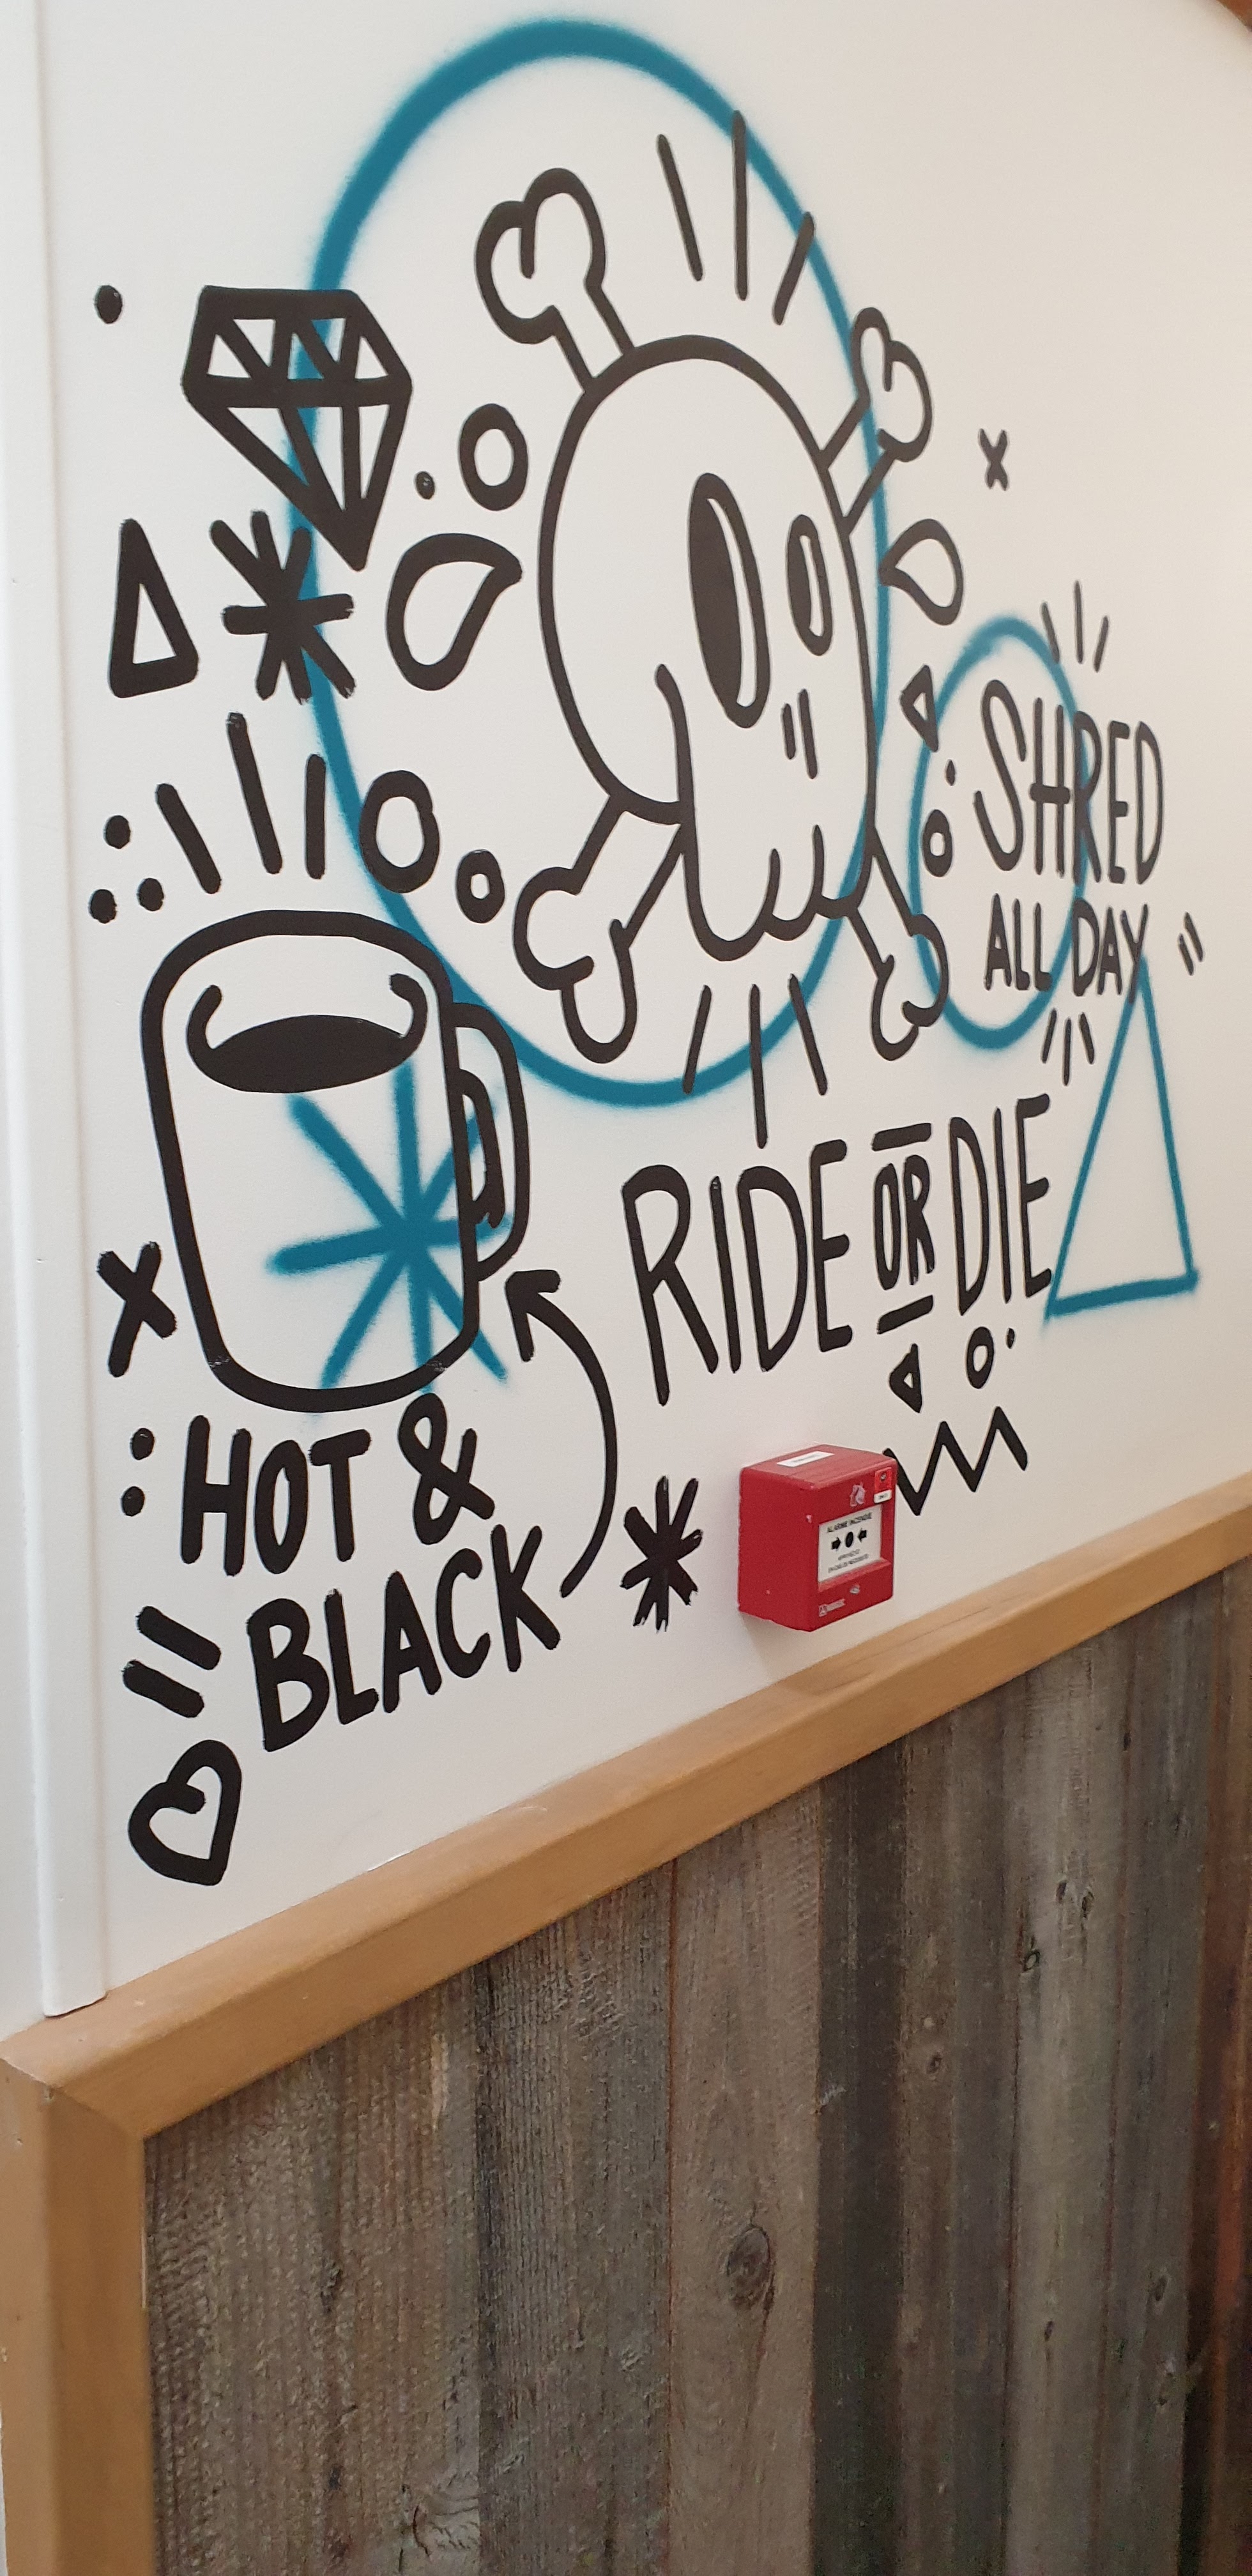 SHRED
ALL DAY
RIDE OR DIE
HOT &
BLACK
ALARME INCENDIE